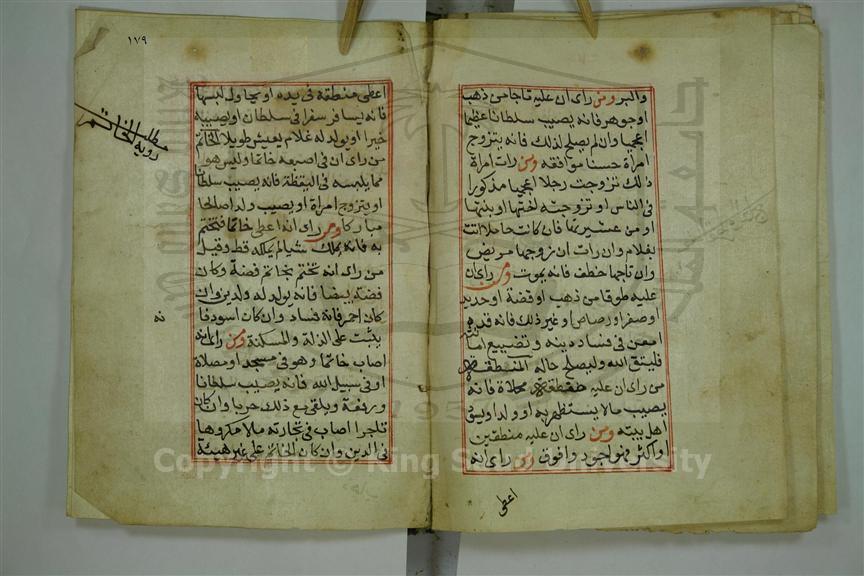 والبر ومن راى ان عليه تاجا من ذهب
او جوهر فانه يصيب سلطانا عظيما
اعجميا وان لم يصلح لذلك فانه يتزوج
امراة حسنا موافقه ومن رات امراة
ذلك تزوجت رجلا اعجميا مذكورا
فى الناس او تزوجته لختها او بنتها
او من عشيرتها فان كانت حاملا اتت
بغلام وان رات ان زوجها مريض
وان تاجها خطف فانه يموت ومن راى ان
عليه طوقا من ذهب او فضة او حديد
او صفر او رصاص او غير ذلك فانه قد
امعن فى فساد دينه و تضييع
فليتق الله وليصلح حاله المنطقة
من راى ان عليه محلاة فانه
يصيب مالا يستظهر به او ولد او يسود
اهل بيته ومن راى ان عليه منطقتين
او اكثر فهو اجود واقوى راى انه
اعطى
١٧٩
مطلب
رويه الخاتم
اعطى منطقة فى يده او بها ولم يلبسها
فانه يسافر سفرا فى سلطان او يصيبه
خيرا او يولد له غلام يعيش طويلا الخاتم
من راى ان فى اصبعه خاتما وليس هو
مما يلبسه فى اليقظة فانه يصيب سلطانا
او يتزوج امراة او يصيب ولدا صالحا
مباركا ومن راى انه اعطى خاتما فتختم
به فانه يملك شيا لم يملكه قط وقيل
من راى انه تختم بخاتم فضة وكان
فضة بيضا فانه يولد له ولدين وان
كان احمر فانه فساد وان كان اسود فا
نه
يثبت على الذلة والمسكنة ومن راى انه
اصاب خاتما وهو فى مسجد او مصلاة
او فى سبيل الله فانه يصيب سلطانا
ورفعة ويلقى مع ذلك حربا وان كان
تاجرا اصاب فى تجارته مالا مكروها
فى الدين وان كان الخاتم على غير هيئة
Copyright © King Saud University